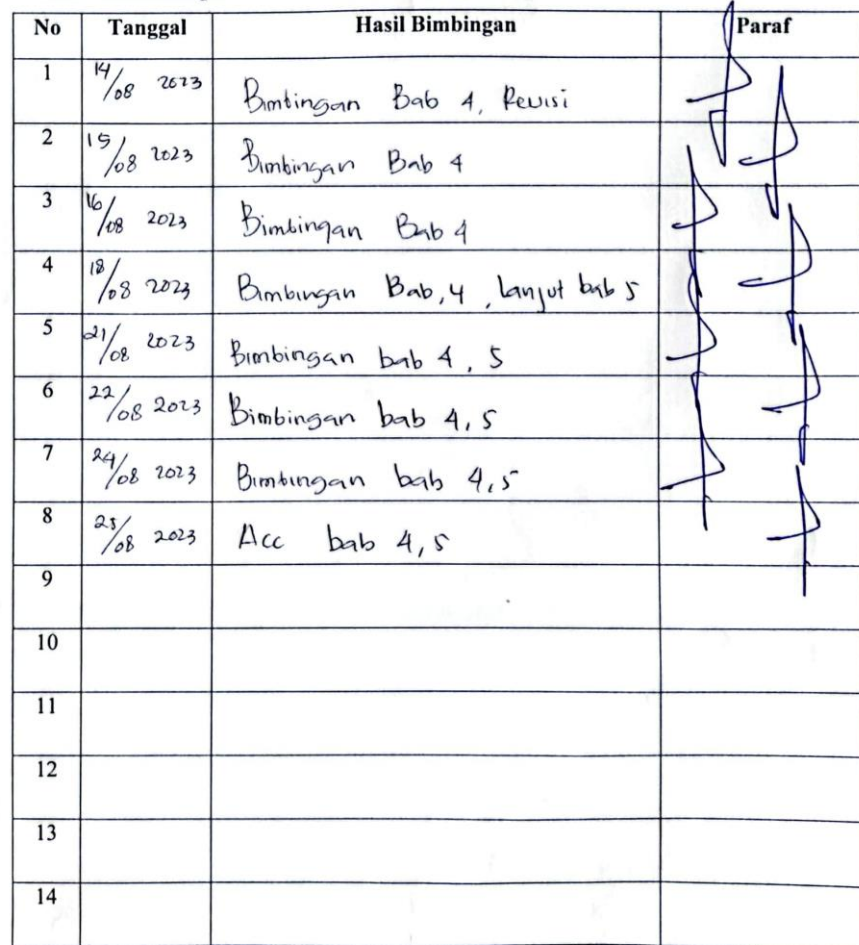 No Tanggal Hasil Bimbingan Paraf
1 14/08 2023 Bimbingan Bab 4, Revisi
2 15/08 2023 Bimbingan Bab 4
3 16/08 2023 Bimbingan Bab 4
4 18/08 2023 Bimbingan Bab, 4, lanjut bab 5
5 21/08 2023 Bimbingan bab 4, 5
6 22/08 2023 Bimbingan bab 4, 5
7 24/08 2023 Bimbingan bab 4, 5
8 25/08 2023 Acc bab 4, 5
9
10
11
12
13
14